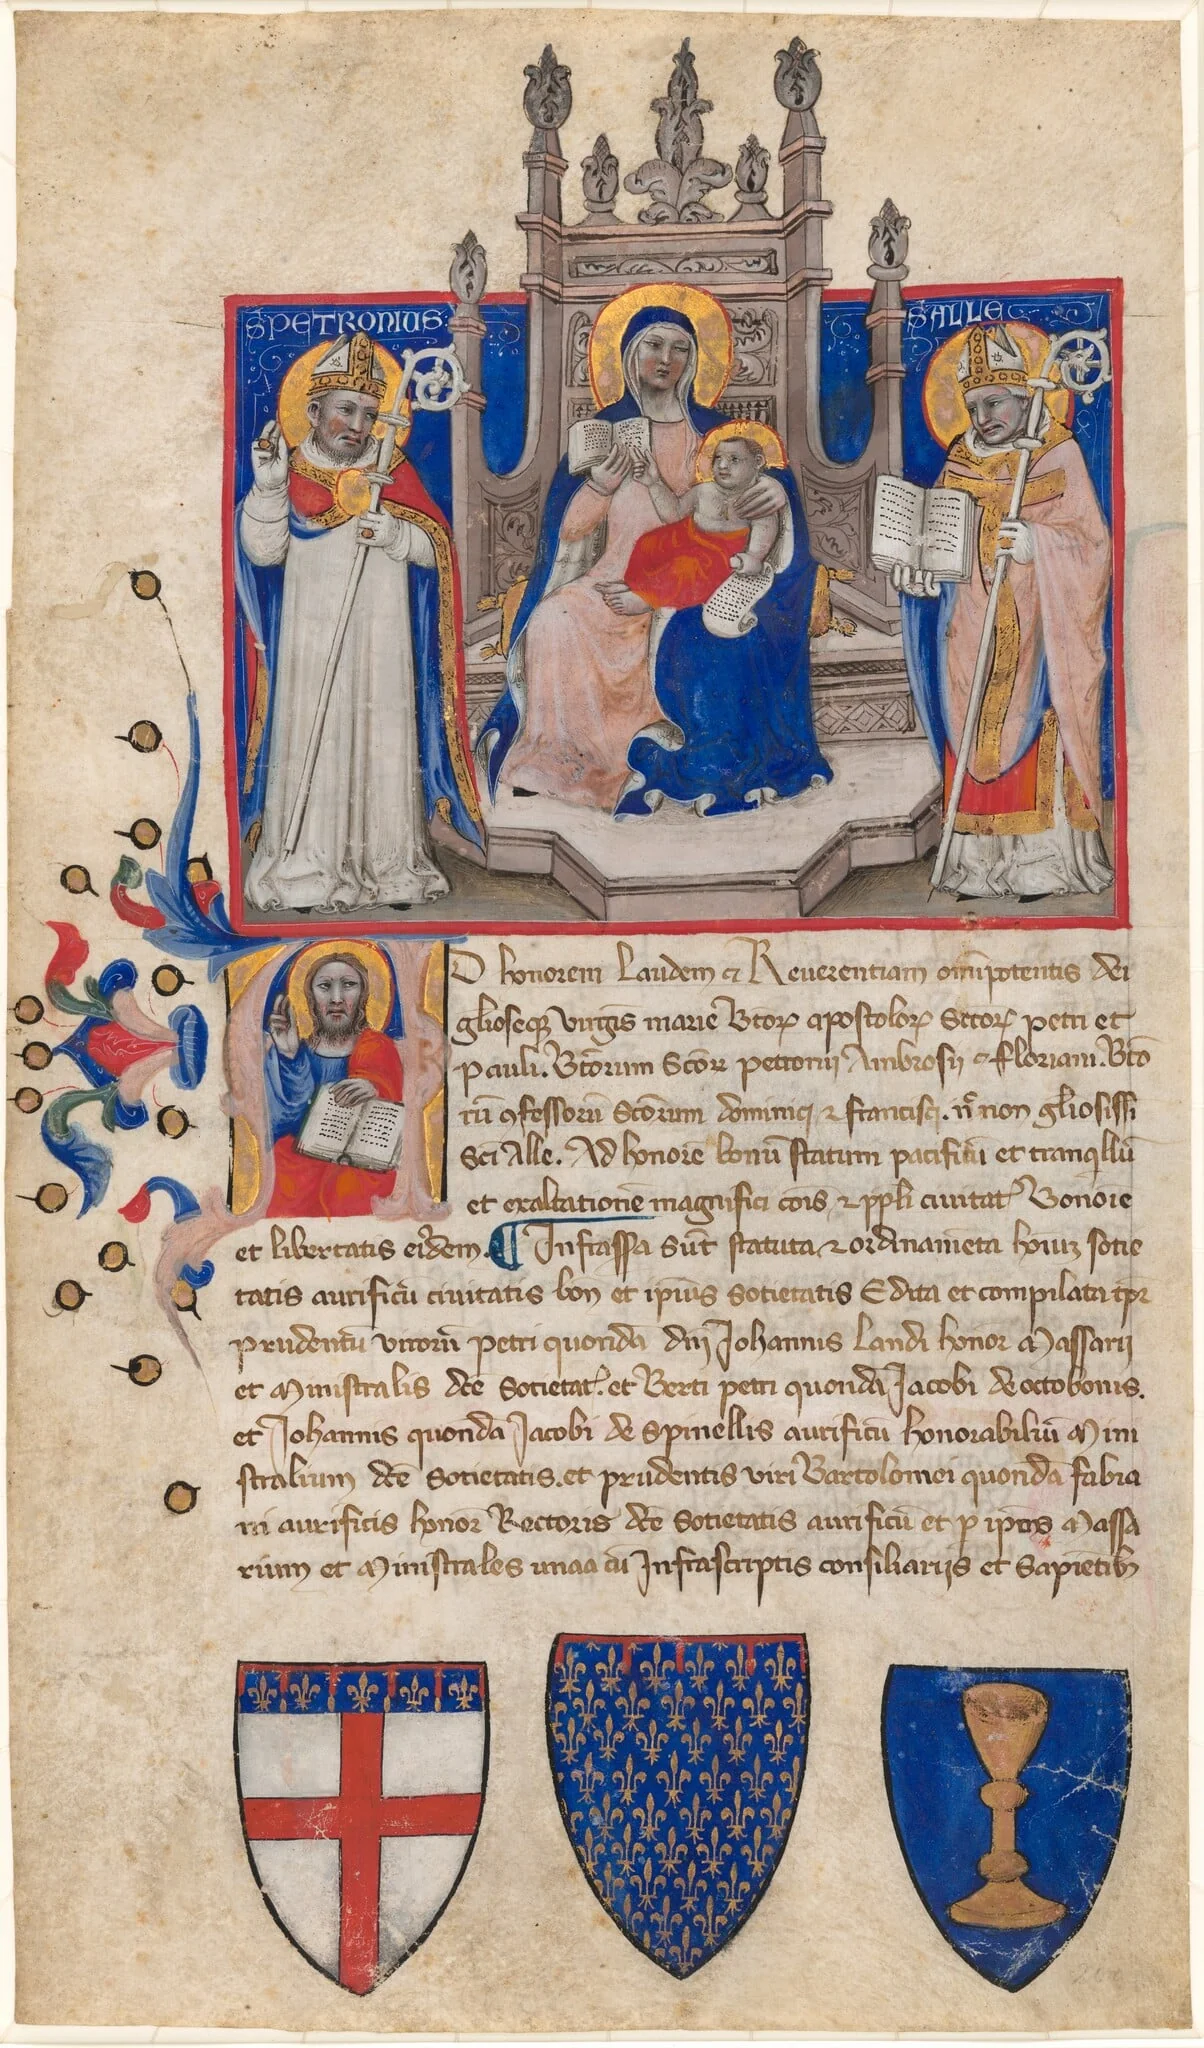 S PETRONIUS
S ALLE
AD honorem Laudem & Reuerentiam omĩpotentis dei
gl̃ioseqꝫ Virgĩs marie Bt̃orꝝ apostolorꝝ Sc̃torꝝ petri et
Pauli. Bt̃orum Sc̃orꝝ petronij Ambrosij & floriani. Bt̃o
rũ ꝯfessorũ Sc̃torum dominici & francisci. n̄ non gl̃iosissi
Sc̃i Alle. Ad honorẽ bonũ statum pacificũ et tranq̃llũ
et exaltationẽ magnifici cõis & pp̃li ciuitat̃ Bonõie
et libertatis eiꝰdem. ¶ Infrass̃a sũt statuta & ordinamẽta huiꝰ sotie
tatis aurificũ ciuitatis bon̄ et ip̃ius Sotietatis Edita et compilata p̱
prudentũ virorũ petri quondã dñi Johannis Landi honor̃ Massarij
et Ministralis dc̃e Sotietat̃. et Berti petri quondã Jacobi de octobonis.
et Johannis quondã Jacobi de Spinellis aurificũ honorabiliũ Mini
stralium dc̃e Sotietatis. et prudentis viri Bartolomei quondã fabia
ni aurificis honor̃ Rectoris dc̃e Sotietatis aurificũ et p̱ ip̃os Massa
rium et Ministrales unaa cũ Infrascriptis consiliarijs et Sapiẽtibꝫ